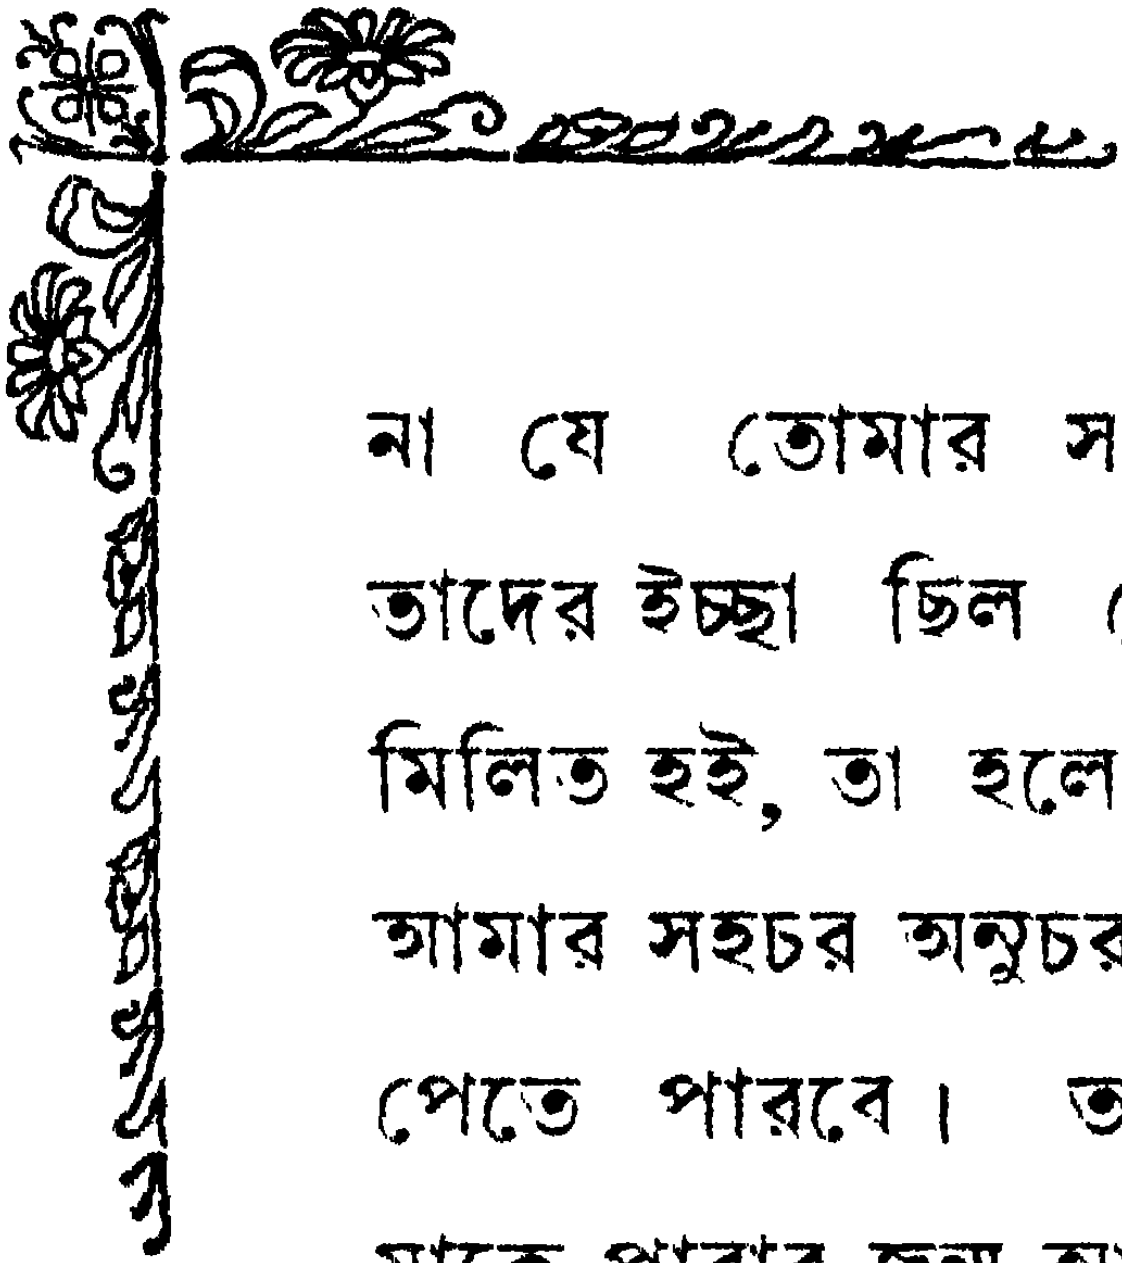 না যে তোমার
তাদের ইচ্ছা ছিল
মিলিত হই, তা হলে
আমার সহচর অনুচর
পেতে পারবে।